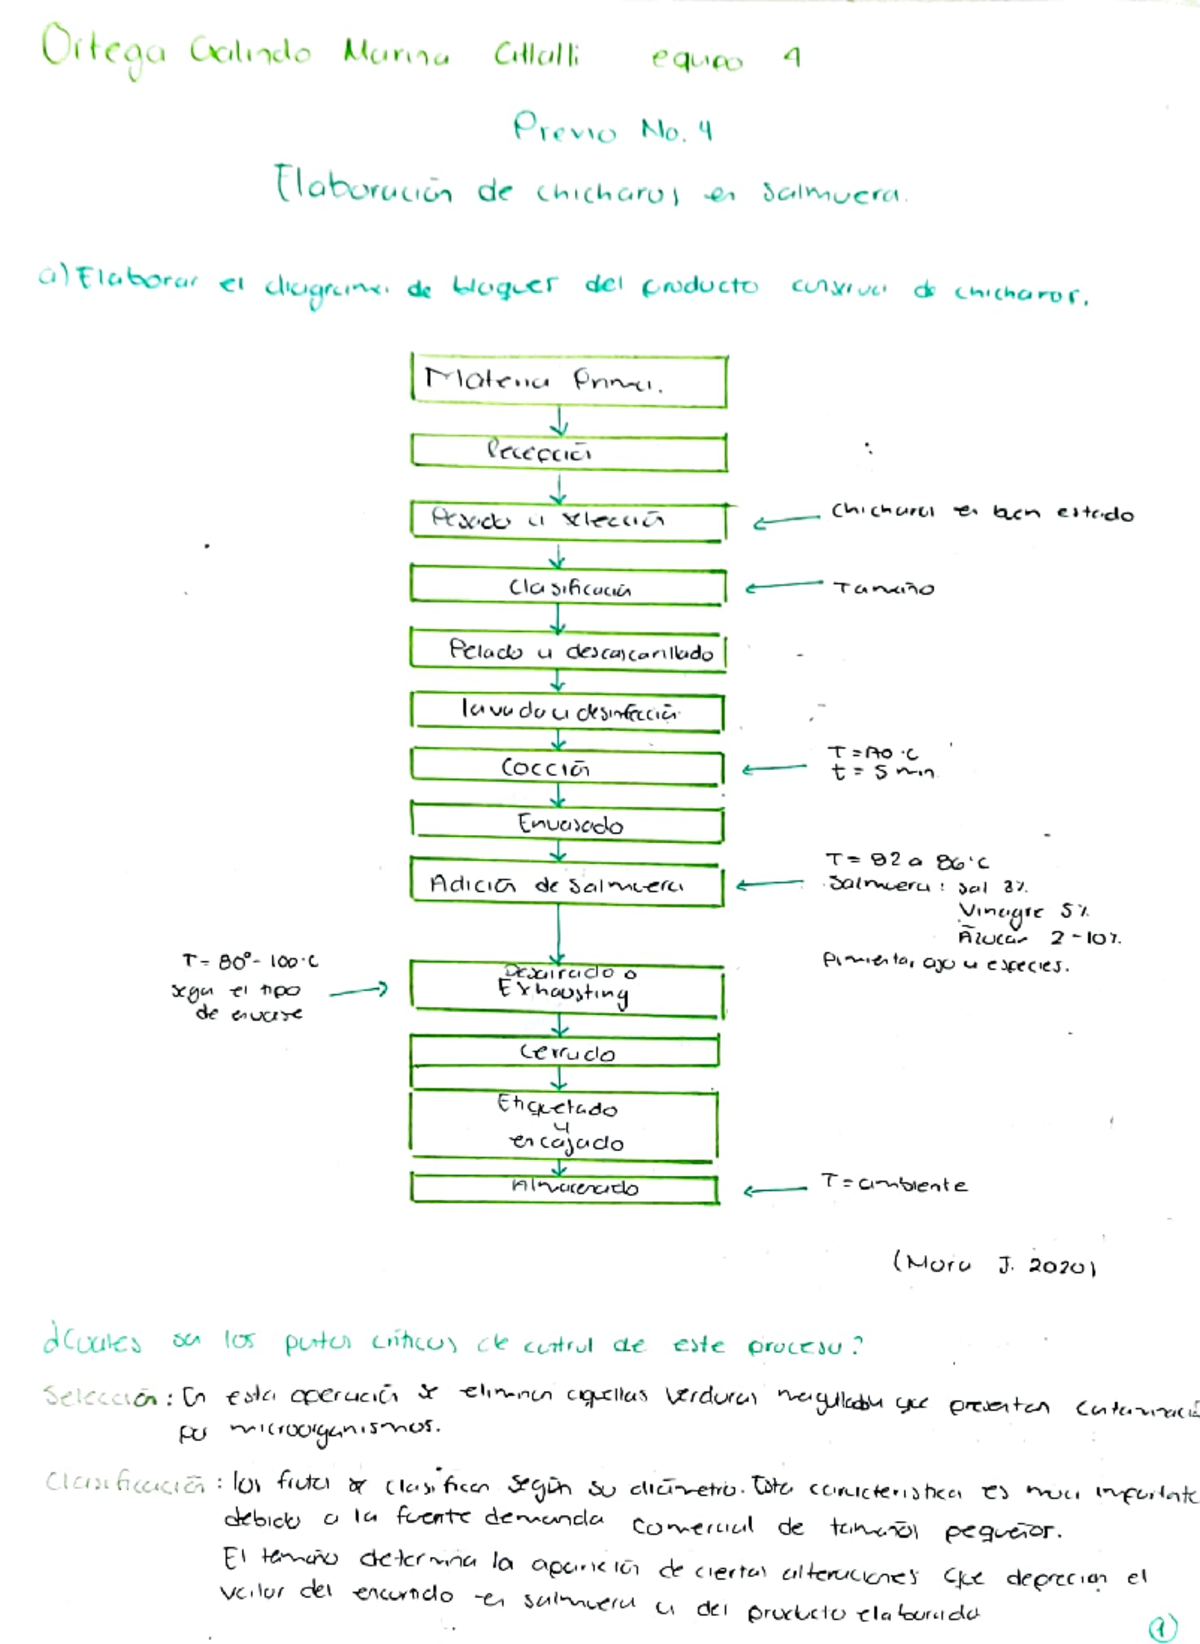 Ortega Galindo Marina Citlalli equipo 4
Previo No. 4
Elaboración de chicharos en salmuera.
a) Elaborar el diagrama de bloques del producto conserva de chicharos.
Materia Prima.
Recepción
Pesado y selección
Chicharos en buen estado
Clasificación
Tamaño
Pelado y descascarillado
lavado y desinfección
Cocción
T = 70 °C
t = 5 min
Envasado
Adición de salmuera
T = 82 a 86 °C
Salmuera: sal 3%
Vinagre 5%
Azucar 2-10%
Pimienta, ajo y especies.
T = 80° - 100 °C
segun el tipo
de envase
Desairado o
Exhausting
Cerrado
Etiquetado
y
encajado
Almacenado
T = ambiente
(Mora J. 2020)
¿Cuales son los puntos críticos de control de este proceso?
Selección: En esta operación se eliminan aquellas verduras que presentan contaminació
por microorganismos.
Clasificación: los frutos se clasifican según su diámetro. Esta caracteristica es muy importante
debido a la fuerte demanda comercial de tamaños pequeños.
El tamaño determina la aparición de ciertas alteraciones que deprecian el
valor del encurtido en salmuera y del producto elaborado
1